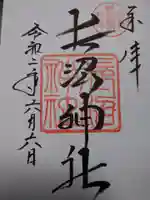 奉拝
長沼神社
令和二年六月六日